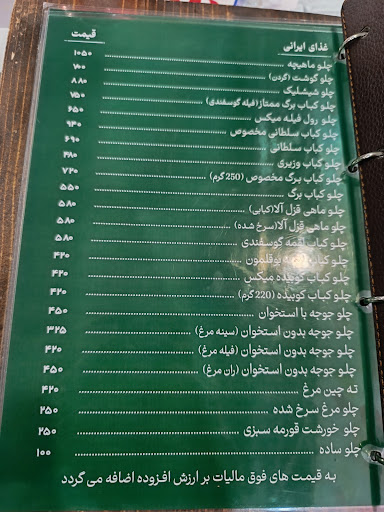 غذای ایرانی قیمت
چلو ماهیچه ۱۰۵۰
چلو گوشت (گردن) ۷۰۰
چلو شیشلیک ۸۸۰
چلو کباب برگ ممتاز (فیله گوسفندی) ۷۵۰
چلو رول فیله میکس ۶۵۰
چلو کباب سلطانی مخصوص ۹۳۰
چلو کباب سلطانی ۶۹۰
چلو کباب وزیری ۴۸۰
چلو کباب برگ مخصوص (250 گرم) ۷۲۰
چلو کباب برگ ۵۵۰
چلو ماهی قزل آلا(کبابی) ۵۸۰
چلو ماهی قزل آلا(سرخ شده) ۵۸۰
چلو کباب لقمه گوسفندی ۵۸۰
چلو کباب بوقلمون ۴۲۰
چلو کباب کوبیده میکس ۴۲۰
چلو کباب کوبیده (220 گرم) ۴۲۰
چلو جوجه با استخوان ۴۵۰
چلو جوجه بدون استخوان (سینه مرغ) ۳۲۵
چلو جوجه بدون استخوان (فیله مرغ) ۴۲۰
چلو جوجه بدون استخوان (ران مرغ) ۴۵۰
ته چین مرغ ۴۲۰
چلو مرغ سرخ شده ۲۵۰
چلو خورشت قورمه سبزی ۲۵۰
چلو ساده ۱۰۰
به قیمت های فوق مالیات بر ارزش افزوده اضافه می گردد